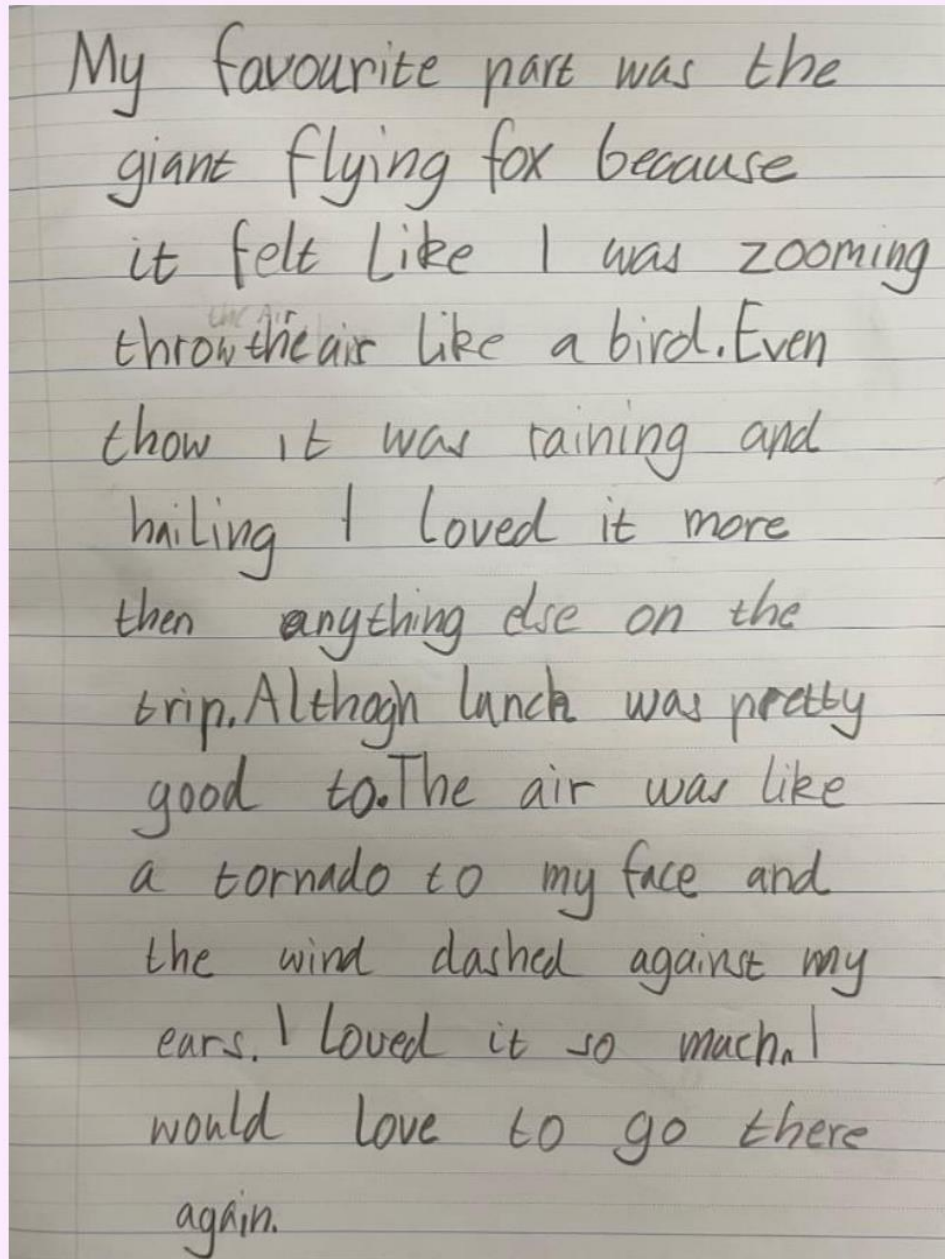 My favourite part was the
giant flying fox because
it felt like I was zooming
the Air
throw the air like a bird. Even
thow it was raining and
hailing I loved it more
then anything else on the
trip. Althogh lunch was pretty
good to. The air was like
a tornado to my face and
the wind dashed against my
ears. I loved it so much. I
would love to go there
again.